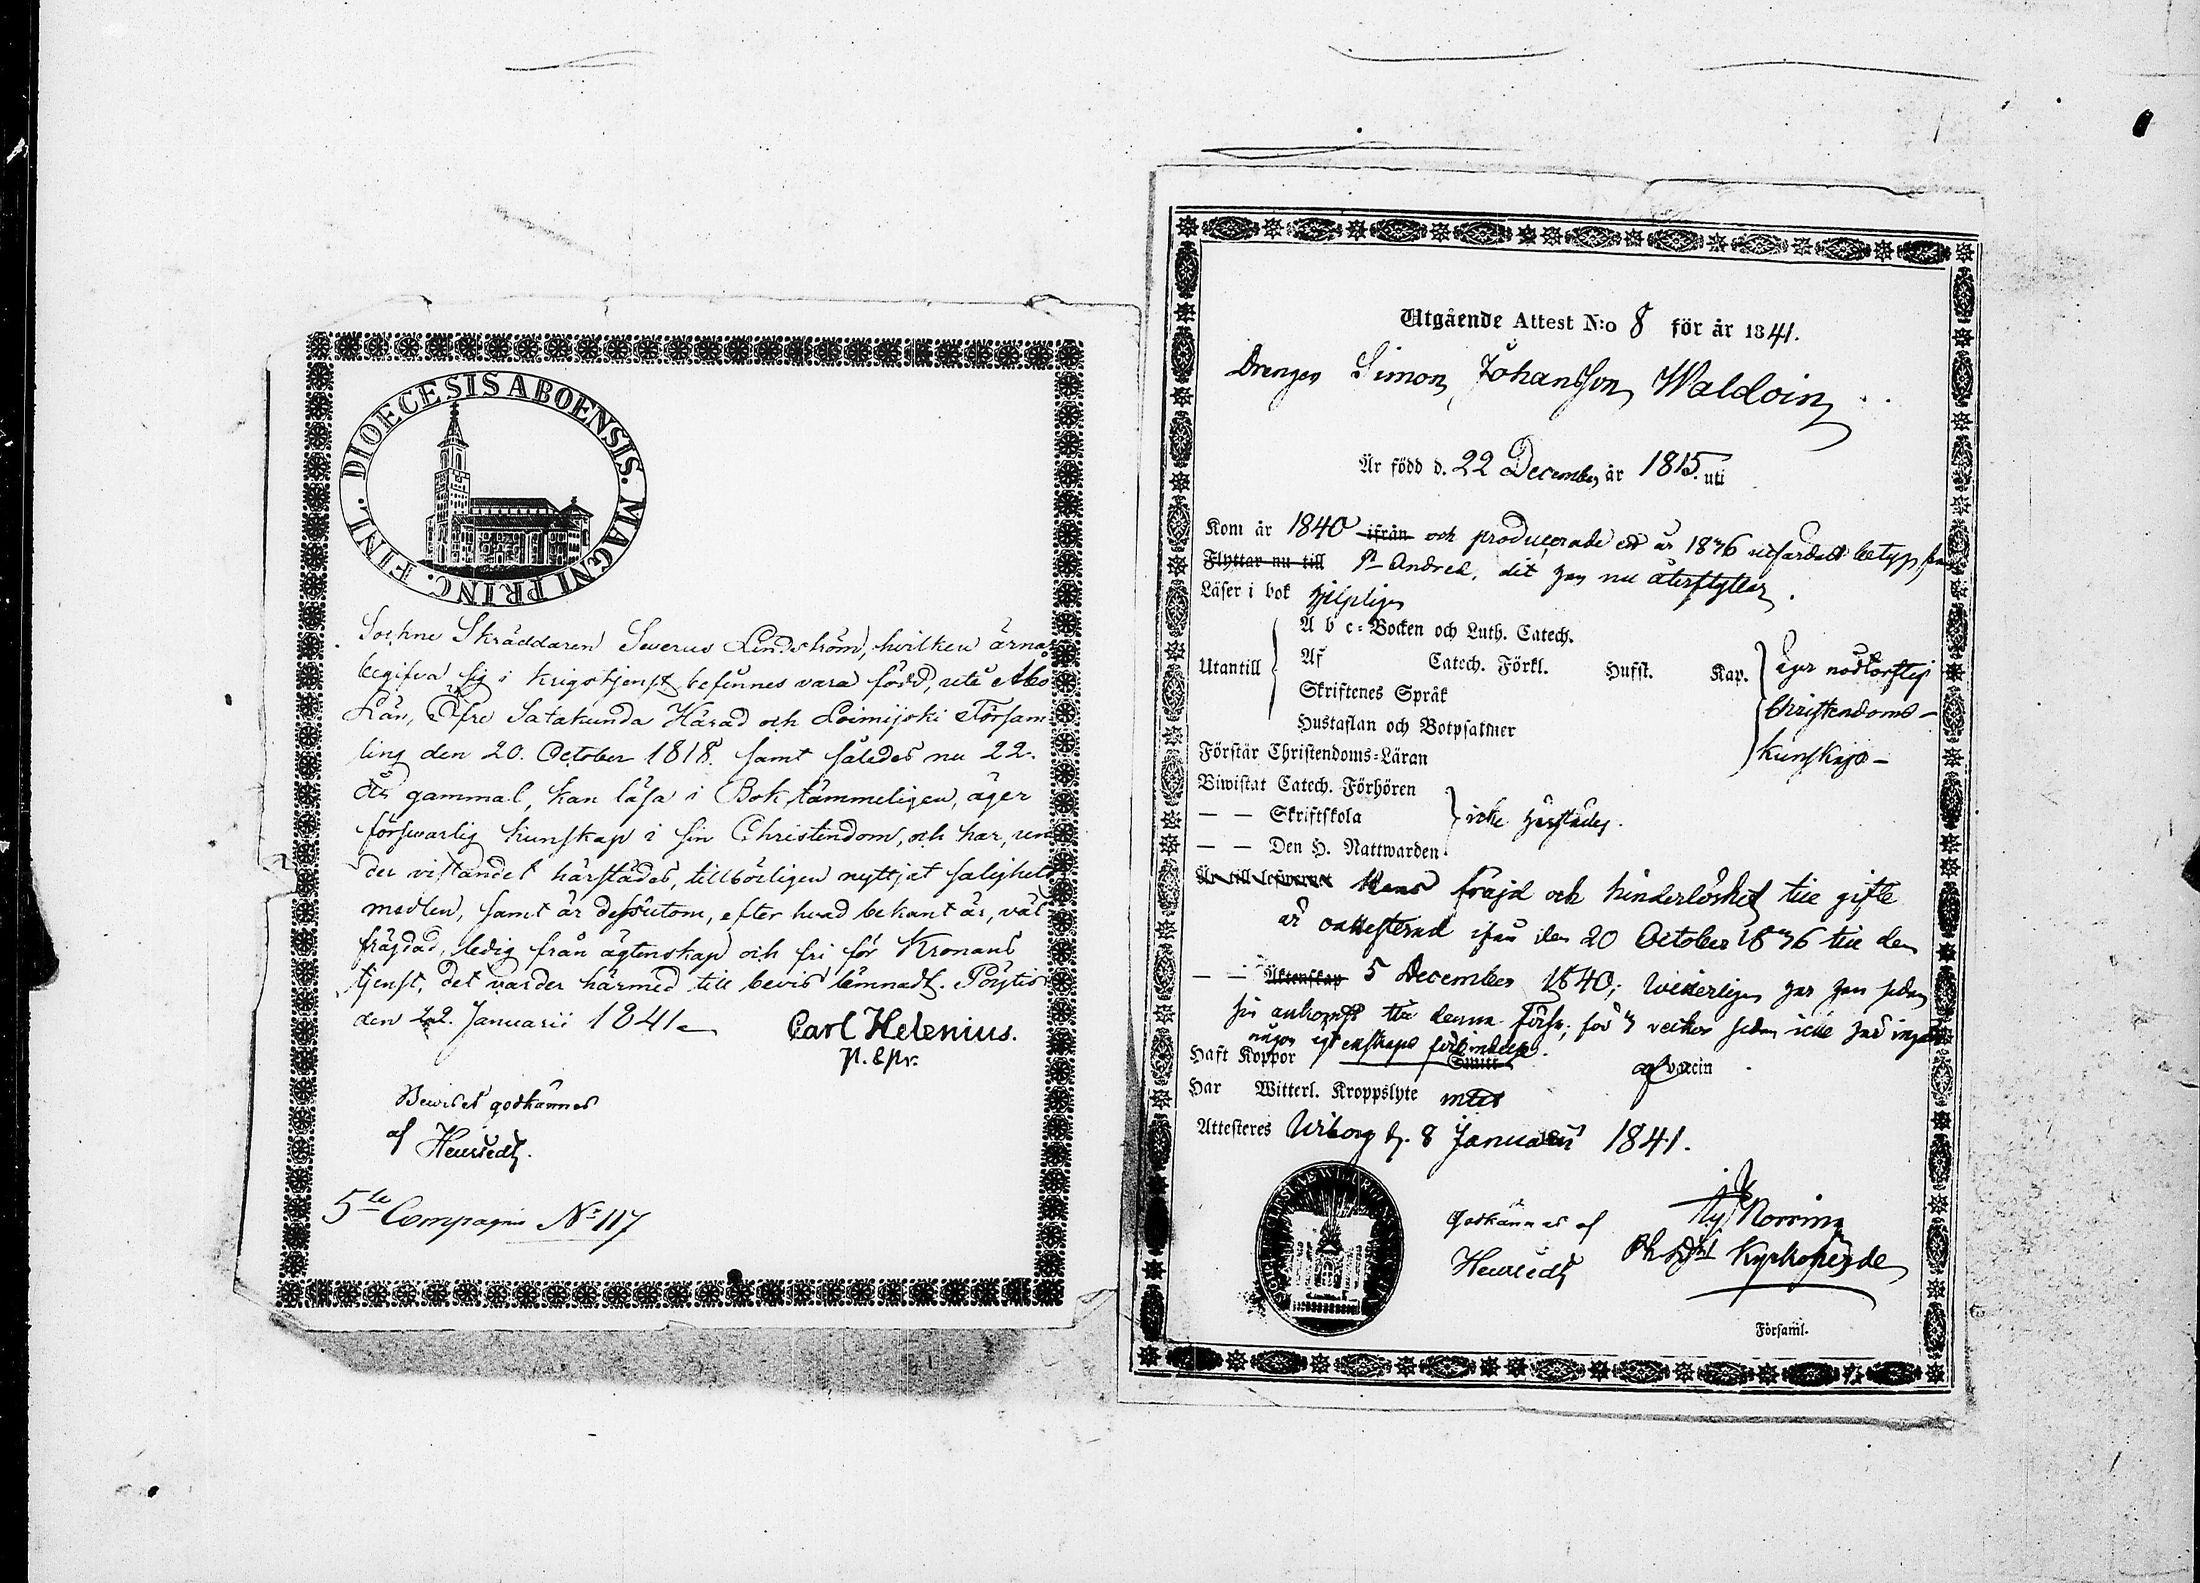 DIOECESIS ABOENSIS. MAGNI PRINC. FINL.
Sockne Skräddaren Severus Lindström, hvilken ärnar
begifva sig i Krigstjenst, befinnes vara född, uti Åbo
Län, Öfre Satakunda Härad och Loimijoki Församˍ
ling den 20. October 1818. samt således nu 22.
år gammal, kan läsa i Bok tämmeligen, äger
försvarlig kunskap i sin Christendom, och har, un
der vistandet härstädes, tillbörligen nyttjat salighets
medlen, samt är dessutom, efter hvad bekant är, väl
frägdad, ledig från ägtenskap och fri för Kronans
tjenst, det varder härmed till bevis lemnadt. Pöytis
den 22. Januarii 1841.
Carl Helenius.
p. & pr.
Beviset godkännes
af
5te Compagni No 117
Utgående Attest N:o 8 för år 1841.
Drengen Simon Johansson Waldoin
Är född d. 22 December år 1815. uti
Kom år 1840 ifrån och producerade ett år 1836 utfärdadt betyg från
Flyttar nu till St Andreæ, dit han nu återflyttar.
Läser i bok hjelpligen
A b c-Bocken och Luth. Catech.
Utantill Af Catech. Förkl. Husst. Kap. eger nödtorftig
Skriftenes Språk Christendoms-
Hustaflan och Botpsalmer
Förstår Christendoms-Läran kunskap-
Biwistat Catech. Förhören
— — Skriftskola icke härstädes.
— — Den H. Nattwarden
Är till lefwernet Hans fräjd och hinderlöshet till gifte
är oattesterad ifrån den 20 October 1836 till den
— — Äktenskap 5 December 1840; witterligen har han sedan
sin ankomst till denna Förs. för 3 veckor sedan icke här ingått
någon egtenskaps förbindelse.
Haft Koppor Smitt. af vaccin
Har Witterl. Kroppslyte intet
Attesteres Wiborg d. 8 Januarii 1841.
Godkännes af
Kyrkoherde
Församl.